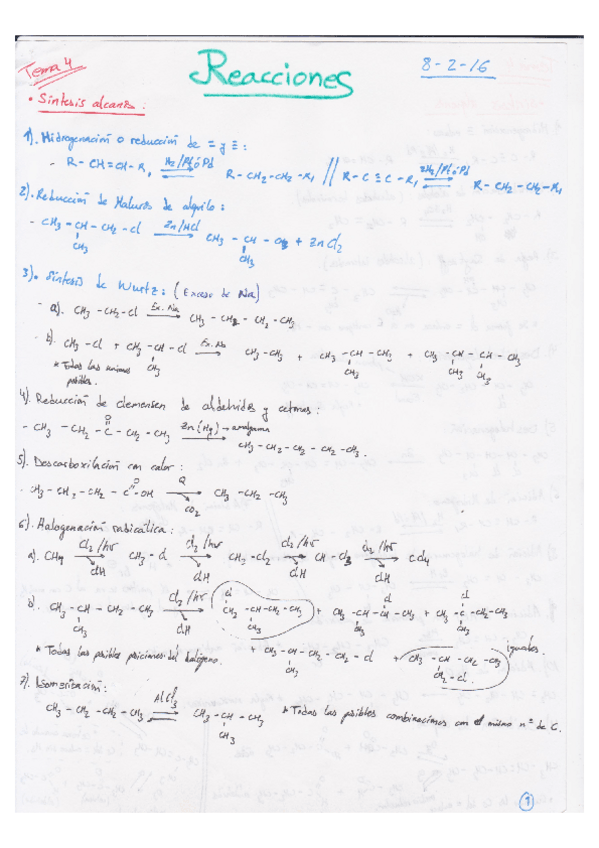 Tema 4
Reacciones
8-2-16
• Síntesis alcanos:
1). Hidrogenación o reducción de = y ≡:
- R-CH=CH-R₁ ⇌ H₂/Pt ó Pd R-CH₂-CH₂-R₁ // R-C≡C-R₁ ⇌ 2H₂/Pt ó Pd R-CH₂-CH₂-R₁
2). Reducción de Haluros de alquilo:
- CH₃-CH-CH₂-Cl → Zn/HCl CH₃-CH-CH₃ + ZnCl₂
CH₃ CH₃
3). Síntesis de Wurtz: (Exceso de Na)
- a). CH₃-CH₂-Cl → Ex. Na CH₃-CH₂-CH₂-CH₃
- b). CH₃-Cl + CH₃-CH-Cl → Ex. Na CH₃-CH₃ + CH₃-CH-CH₃ + CH₃-CH-CH-CH₃
CH₃ CH₃ CH₃ CH₃
* Todas las uniones
posibles.
4). Reducción de Clemensen de aldehidos y cetonas:
O
- CH₃-CH₂-C-CH₂-CH₃ → Zn(Hg) → amalgama CH₃-CH₂-CH₂-CH₂-CH₃.
5). Descarboxilación con calor:
O
- CH₃-CH₂-CH₂-C-OH → Q CH₃-CH₂-CH₃
CO₂
6). Halogenación radicálica:
a). CH₄ → Cl₂/hν CH₃-Cl → Cl₂/hν CH₂-Cl₂ → Cl₂/hν CH-Cl₃ → Cl₂/hν CCl₄
ClH ClH ClH ClH
Cl Cl Cl
b). CH₃-CH-CH₂-CH₃ → Cl₂/hν CH₂-CH-CH₂-CH₃ + CH₃-CH-CH-CH₃ + CH₃-C-CH₂-CH₃
CH₃ ClH CH₃ CH₃ CH₃
iguales.
* Todas las posibles posiciones del halógeno. + CH₃-CH-CH₂-CH₂-Cl + CH₃-CH-CH₂-CH₃
CH₃ CH₂-Cl.
7). Isomerización:
CH₃-CH₂-CH₂-CH₃ ⇌ AlCl₃ CH₃-CH-CH₃ * Todas las posibles combinaciones con el mismo nº de C.
CH₃
1